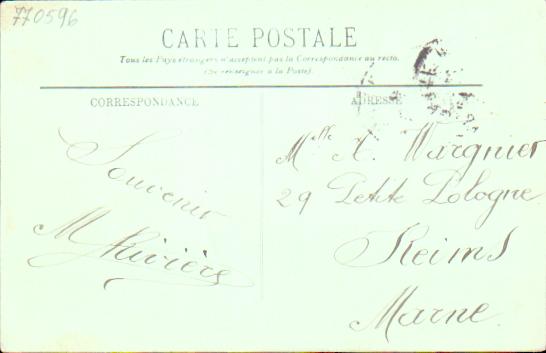 770596
CARTE POSTALE
Tous les Pays étrangers n'acceptent pas la Correspondance au recto.
(Se renseigner à la Poste).
CORRESPONDANCE
ADRESSE
Souvenir
M Rivière
Mlle A. Wargnier
29 Petite Pologne
Reims
Marne.